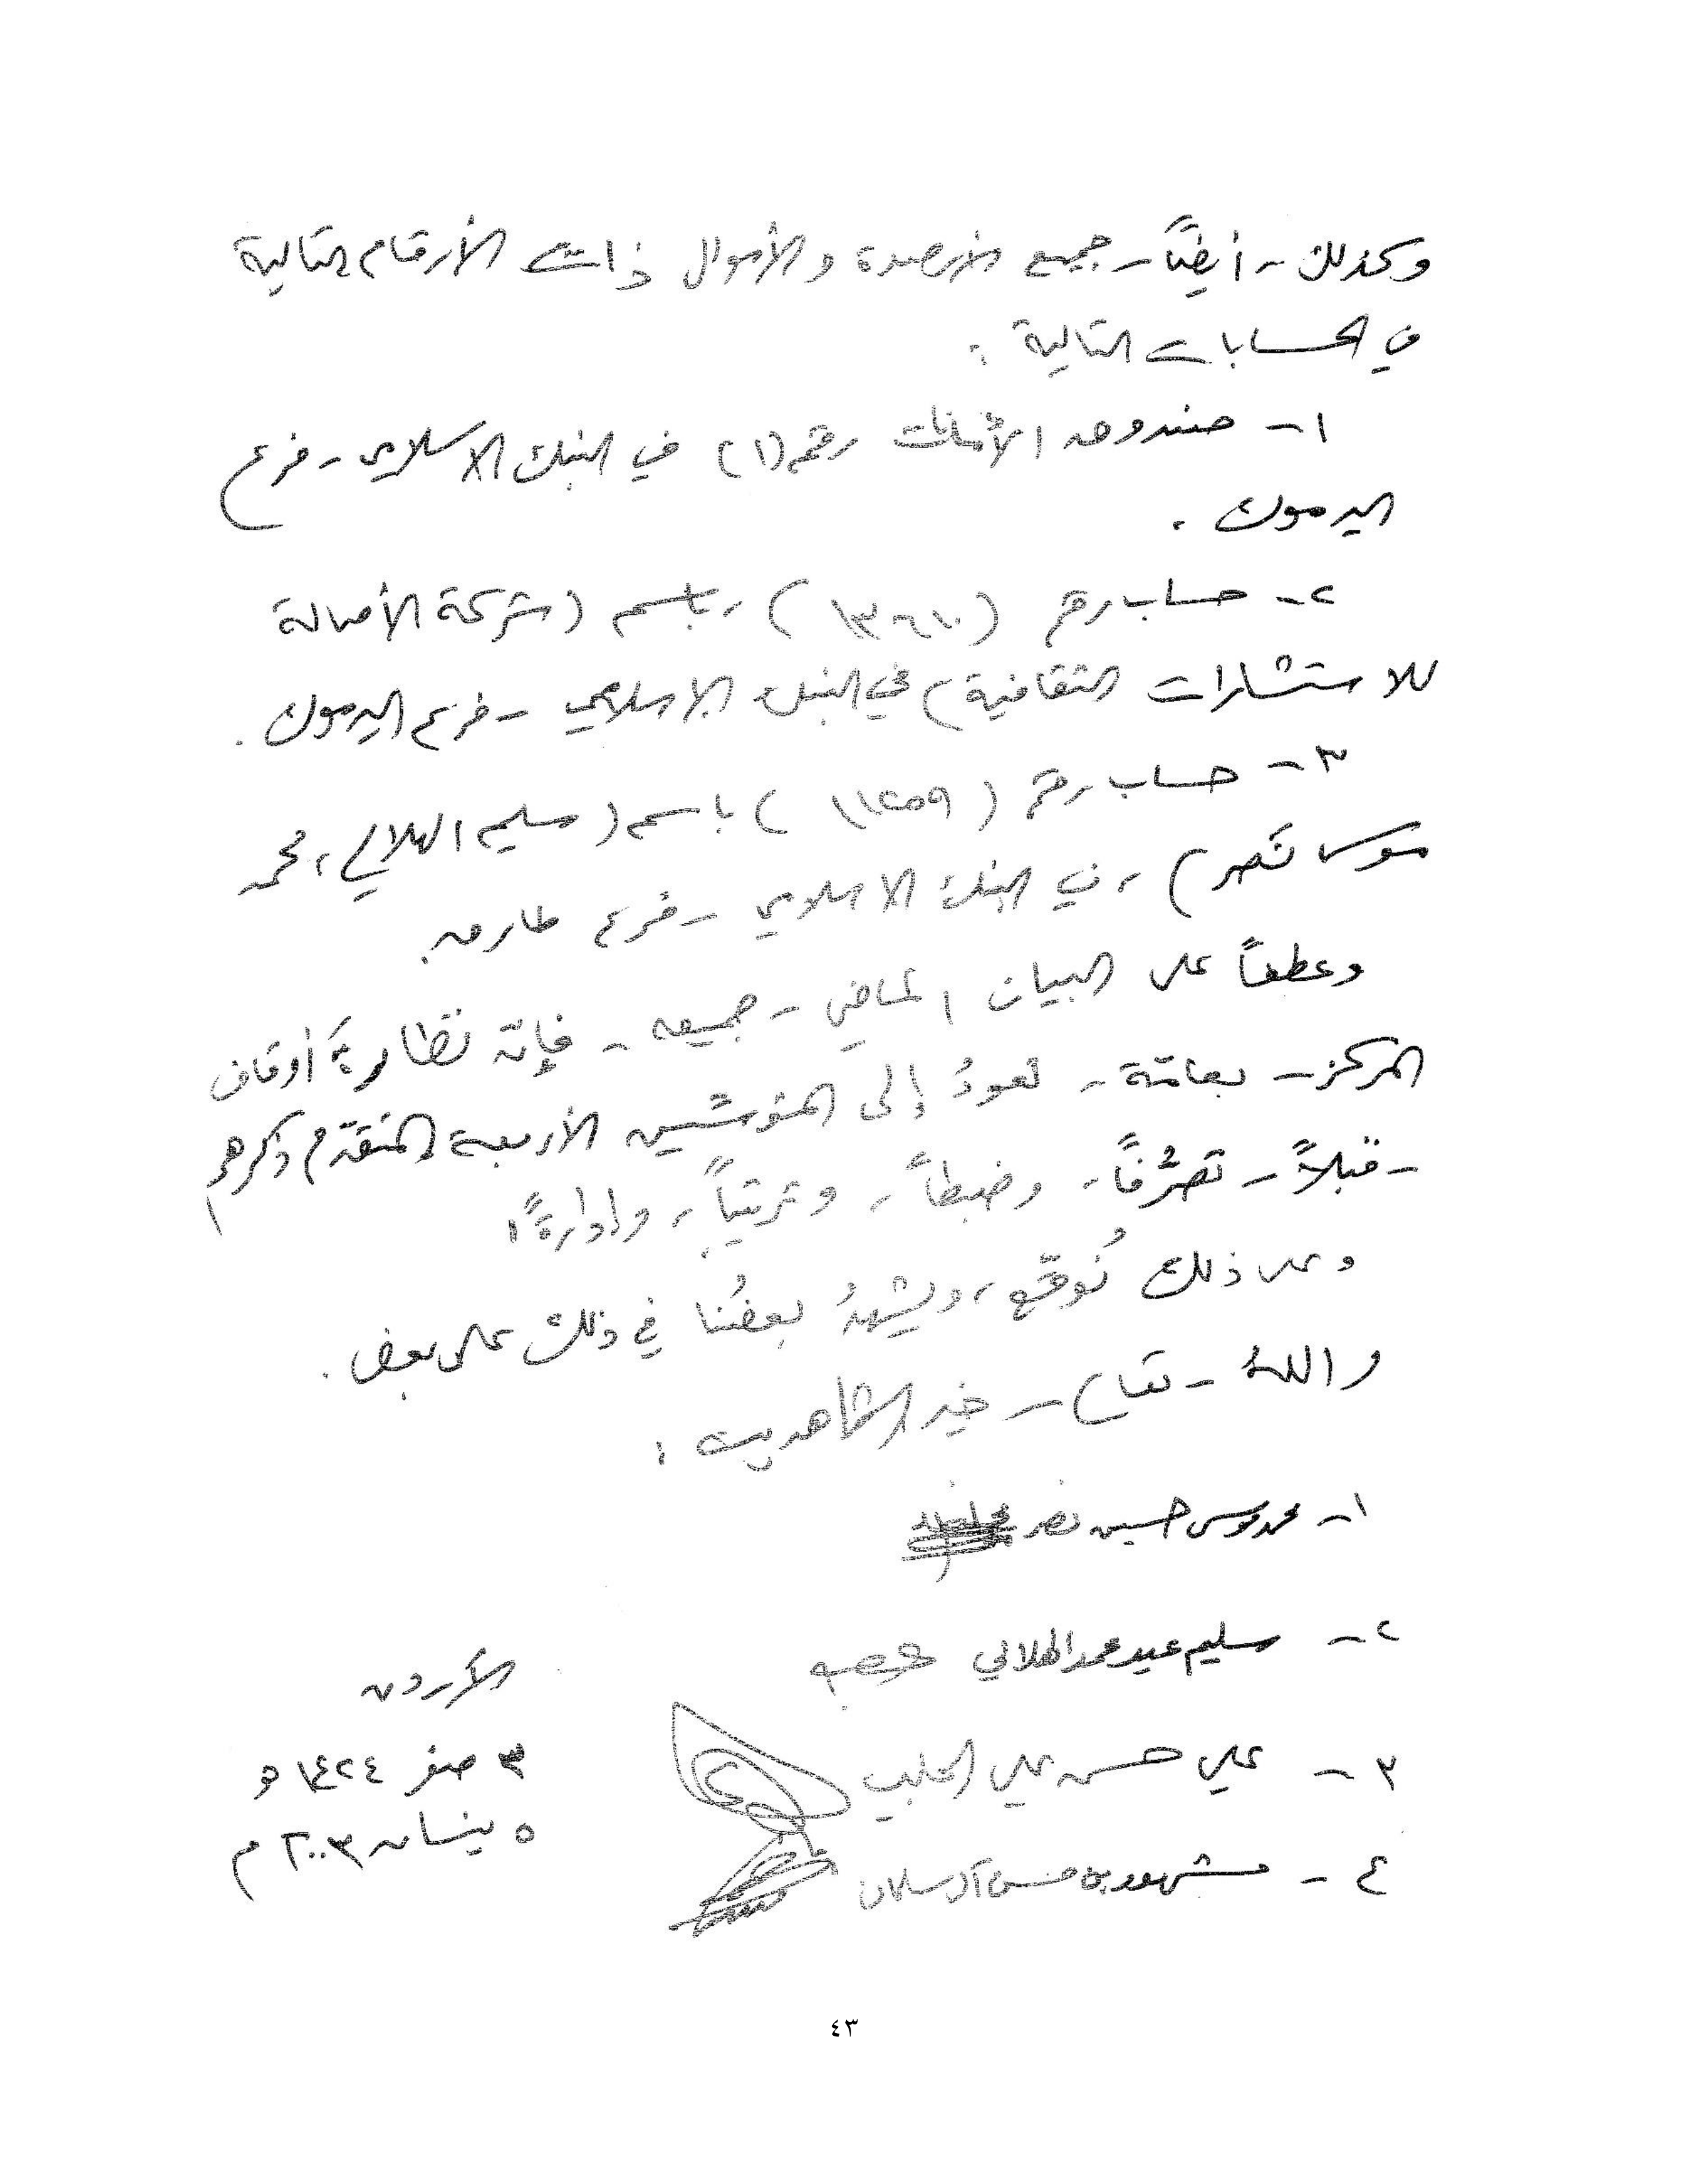 وكذلك - أيضاً - جميع الأرصدة والأموال ذات الأرقام التالية
في الحسابات التالية :
١- صندوق الأمانات رقم (١) في البنك الإسلامي - فرع
اليرموك .
٢- حساب رقم (١٣٦١٠) ، باسم (شركة الأصالة
للاستشارات الثقافية) في البنك الإسلامي - فرع اليرموك .
٣- حساب رقم (١١٢٥٩) باسم (سليم الهلالي ، محمد
موسى نصر) ، في البنك الاسلامي - فرع طارق .
وعطفاً على البيان الماضي - جميعه - فإنّ نظارة أوقاف
المركز - بعامّة - تعودُ إلى المؤسّسين الأربعة المتقدّم ذكرهم
- قبلاً - تصرُّفاً ، وضبطاً ، وترتيباً ، وإدارةً ؛
وعلى ذلك نُوقّع ، ويشهدُ بعضُنا في ذلك على بعض .
واللهُ - تعالى - خير الشاهدين :
١- محمد موسى حسين نصر
٢- سليم عيد محمد الهلالي
٣- علي حسن علي الحلبي
٤- مشهور بن حسن آل سلمان
الأردن
٣ صفر ١٤٢٤ هـ
٥ نيسان ٢٠٠٣ م
٤٣